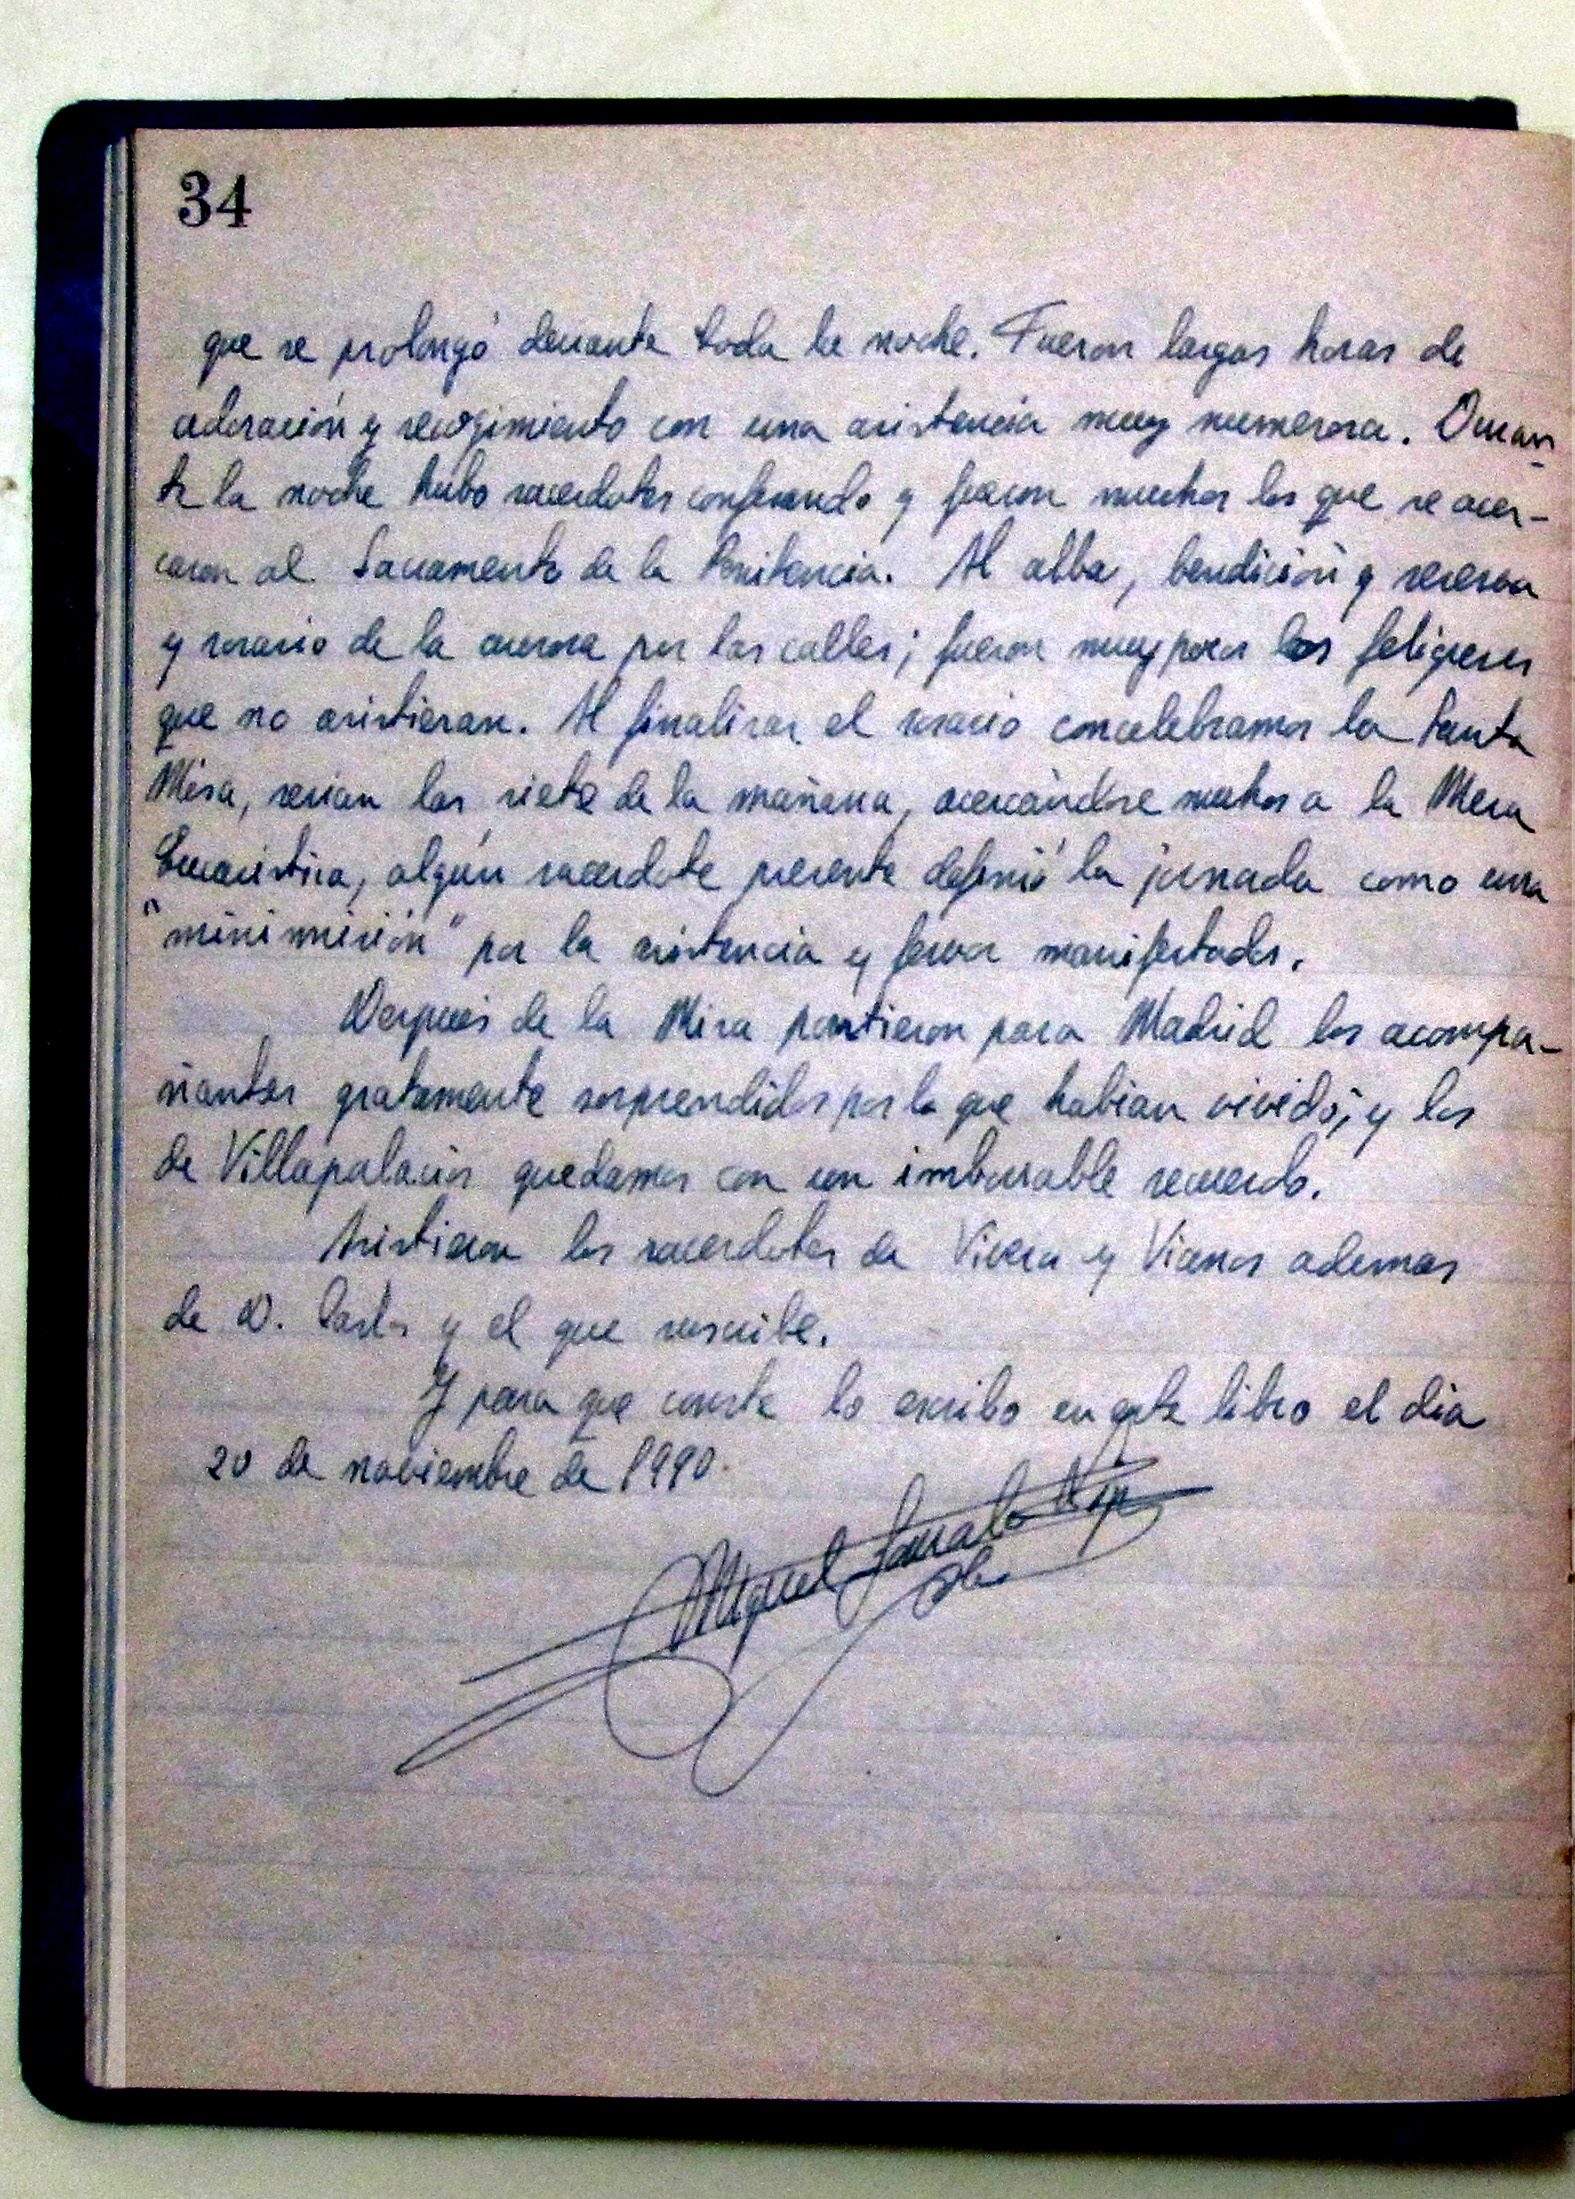 34
que se prolongó durante toda la noche. Fueron largas horas de
adoración y recogimiento con una asistencia muy numerosa. Duran-
te la noche hubo sacerdotes confesando y fueron muchos los que se acer-
caron al Sacramento de la Penitencia. Al alba, bendición y reserva
y rosario de la aurora por las calles; fueron muy pocos los feligreses
que no asistieran. Al finalizar el rosario concelebramos la Santa
Misa, serian las siete de la mañana, acercándose muchos a la Mesa
Eucaristica, algún sacerdote presente definió la jornada como una
"minimisión" por la asistencia y fervor manifestados.
Después de la Misa partieron para Madrid los acompa-
ñantes gratamente sorprendidos por lo que habian vivido; y los
de Villapalacios quedamos con un imborrable recuerdo.
Asistieron los sacerdotes de Vivero y Vianos ademas
de D. Carlos y el que suscribe.
Y para que conste lo escribo en este libro el dia
20 de noviembre de 1990.
Miguel